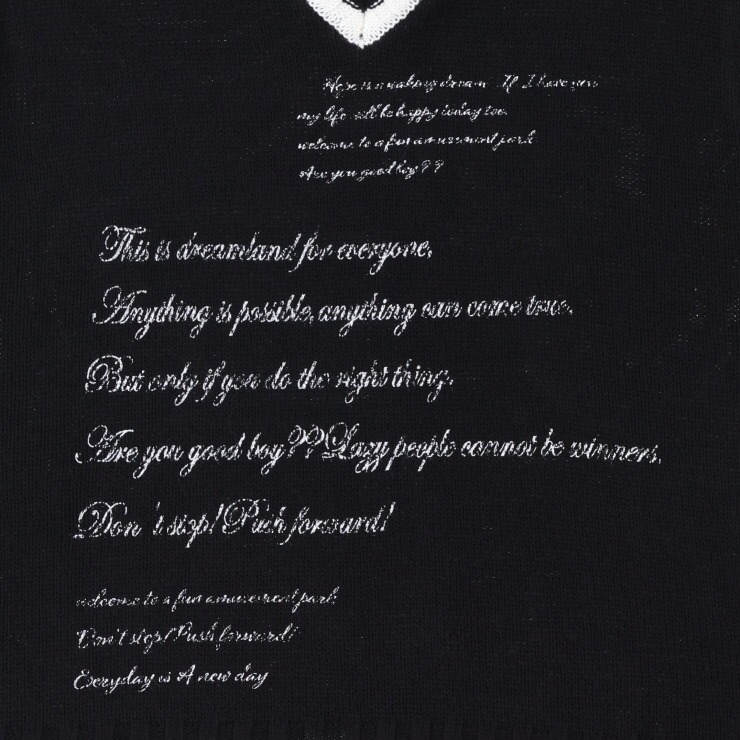 Hope is a making dream If I have you
my life will be happy today too.
welcome to a fun amusement park
Are you good boy??
This is dreamland for everyone.
Anything is possible, anything can come true.
But only if you do the right thing.
Are you good boy?? Lazy people cannot be winners.
Don't stop! Push forward!
welcome to a fun amusement park
Don't stop! Push forward!
Everyday is A new day